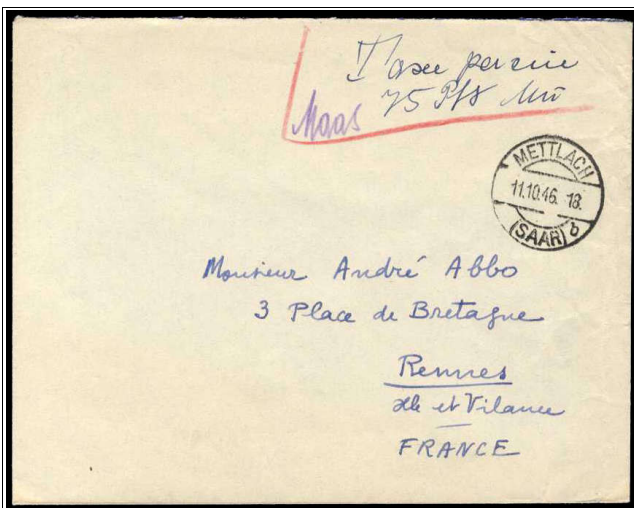 Taxe percue
75 Pfg
Maas
METTLACH
11.10.46. 18.
(SAAR)
Monsieur André Abbo
3 Place de Bretagne
Rennes
Ille et Vilaine
FRANCE